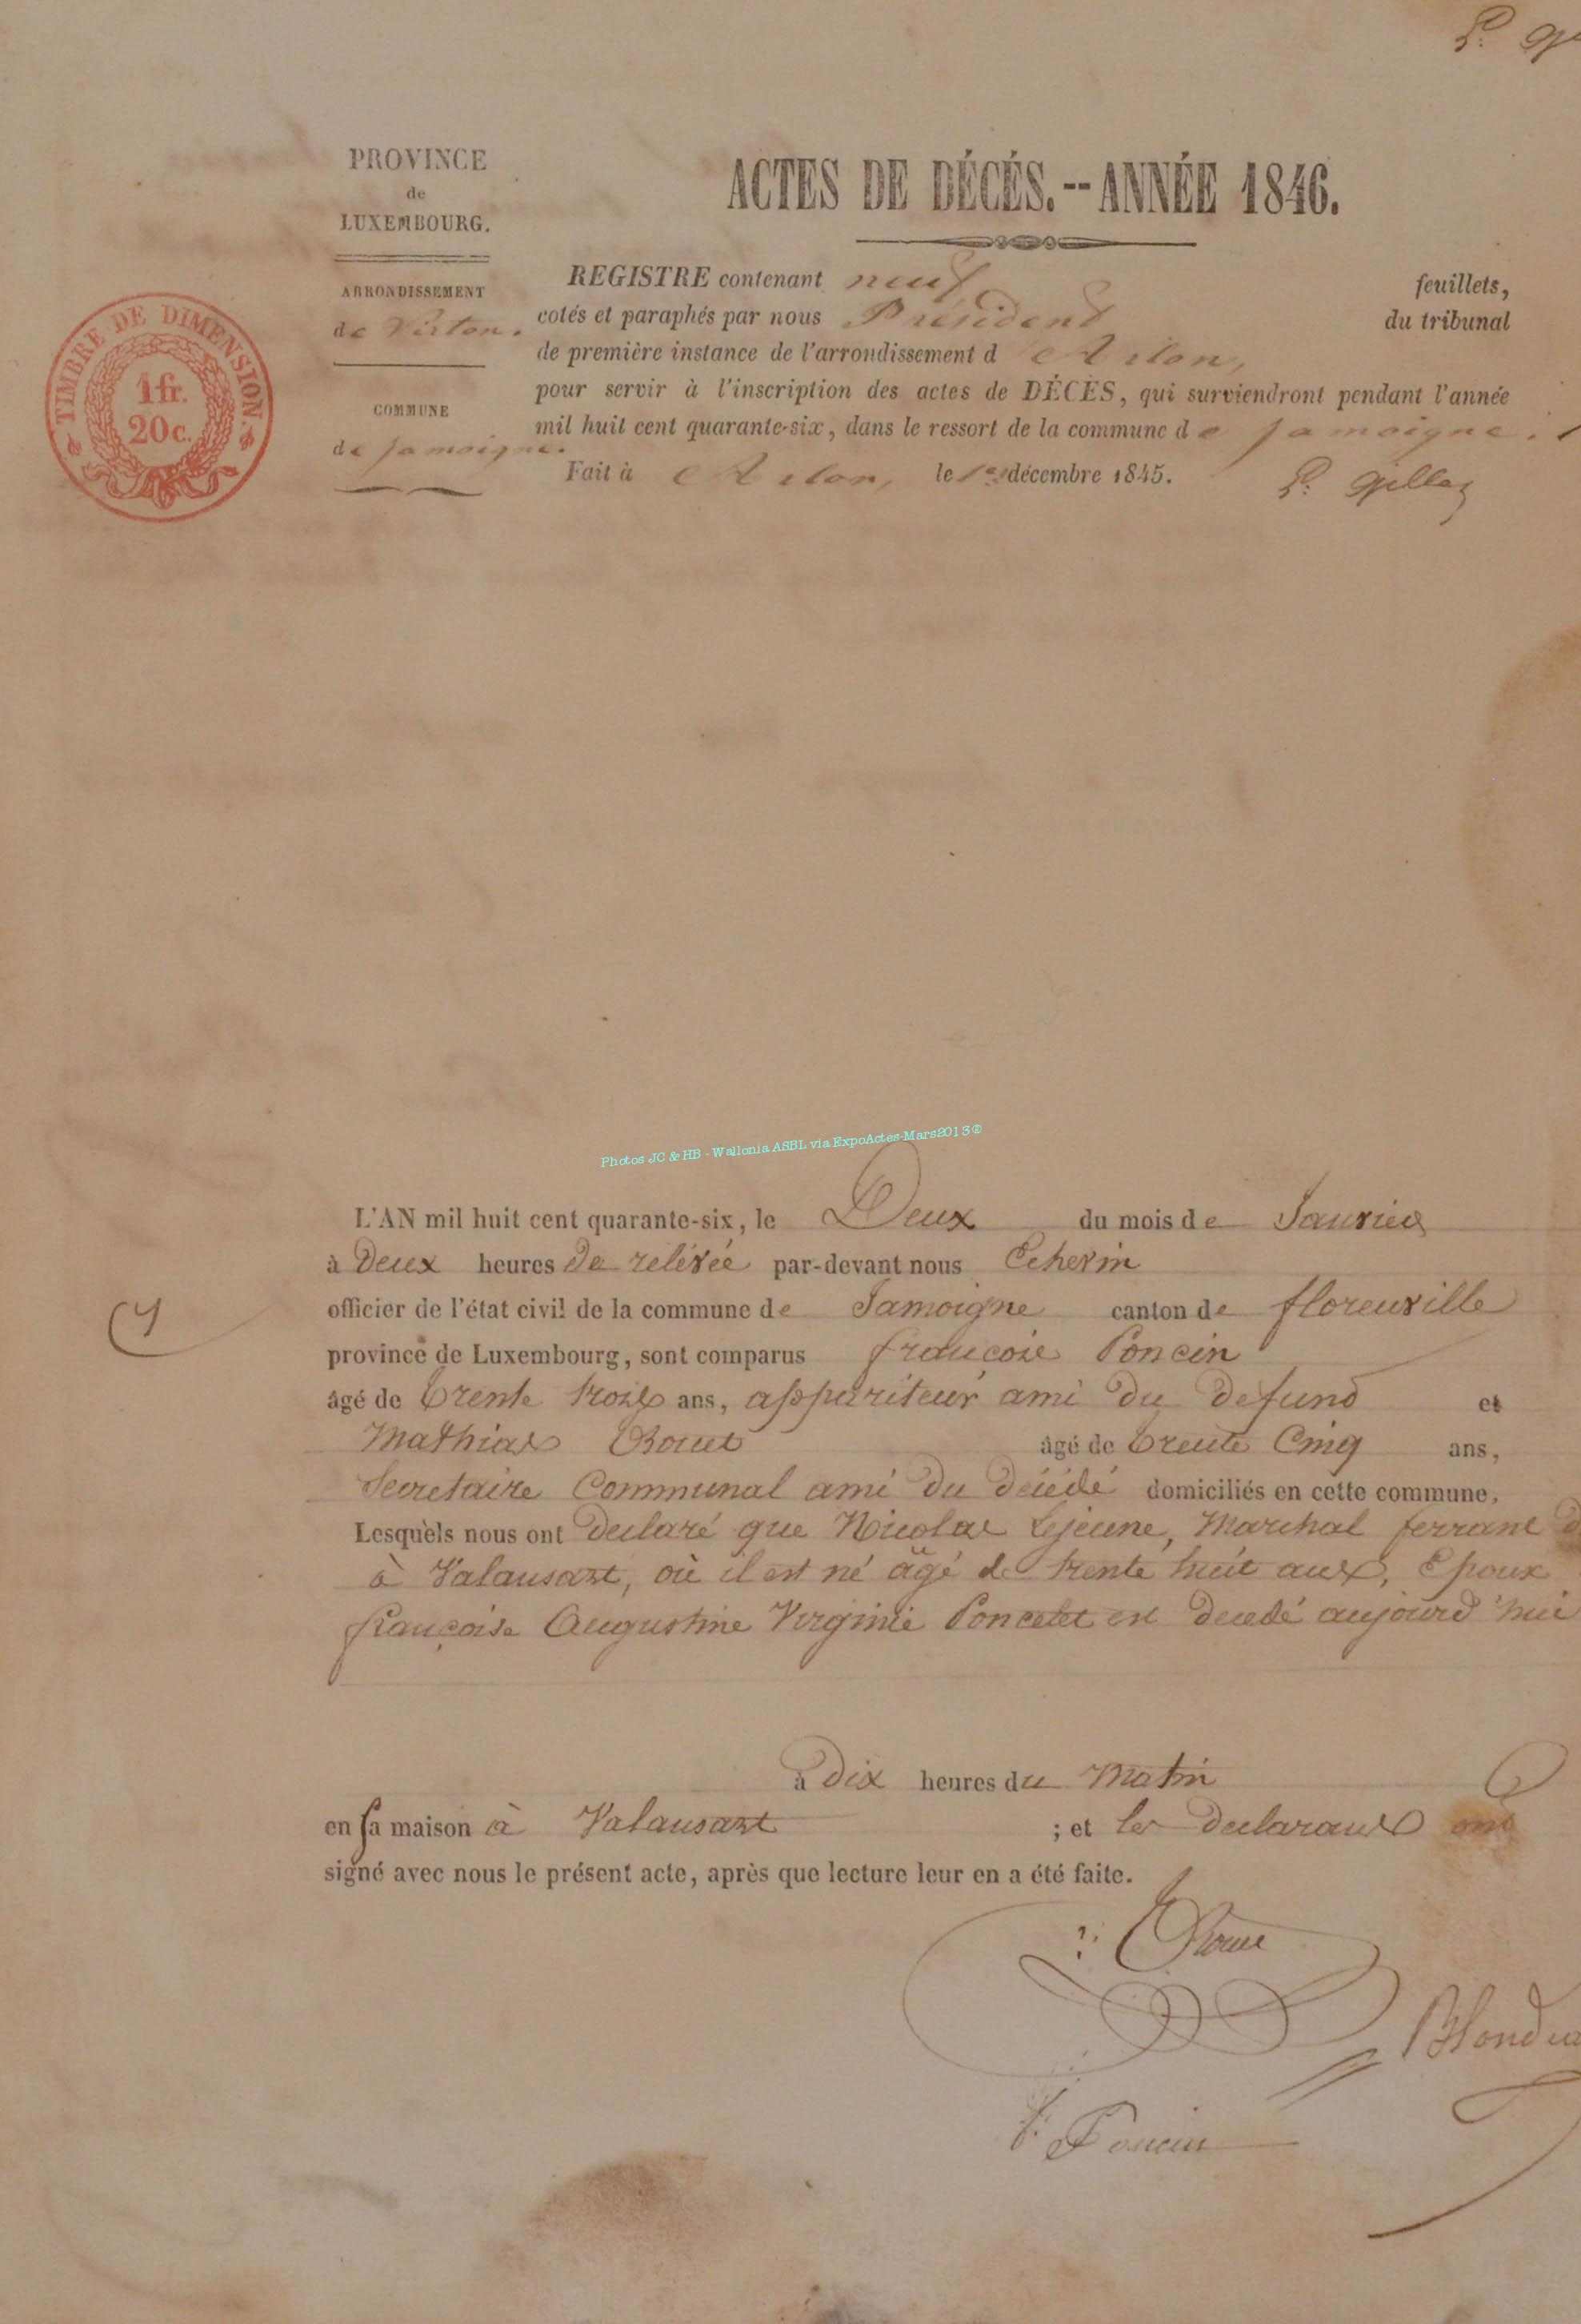 P. G
PROVINCE
de
LUXEMBOURG.
ARRONDISSEMENT
de Virton.
COMMUNE
de Jamoigne.
TIMBRE DE DIMENSION.
1 fr.
20 c.
ACTES DE DÉCÉS.--ANNÉE 1846.
REGISTRE contenant neuf feuillets,
cotés et paraphés par nous Président du tribunal
de première instance de l'arrondissement d'Arlon,
pour servir à l'inscription des actes de DÉCÈS, qui surviendront pendant l'année
mil huit cent quarante-six, dans le ressort de la commune de Jamoigne.
Fait à Arlon, le 1er décembre 1845.
P. Gilles
Photos JC & HB - Wallonia ASBL via ExpoActes-Mars2013©
L'AN mil huit cent quarante-six, le Deux du mois de Janvier
à Deux heures de relévée par-devant nous Echevin
officier de l'état civil de la commune de Jamoigne canton de florenville
province de Luxembourg, sont comparus françois Poncin
âgé de trente trois ans, appariteur ami du defund et
Mathias Roue âgé de trente Cinq ans,
Secretaire Communal ami du décédé domiciliés en cette commune,
Lesquels nous ont declaré que Nicolas Lejeune, Marchal ferrant
à Valansart, où il est né âgé de trente huit ans, Epoux
françoise Augustine Virginie Poncelet est decedé aujourd'hui
à dix heures du Matin
en sa maison à Valansart ; et les declarans ont
signé avec nous le présent acte, après que lecture leur en a été faite.
Roue
Blond
f. Poncin